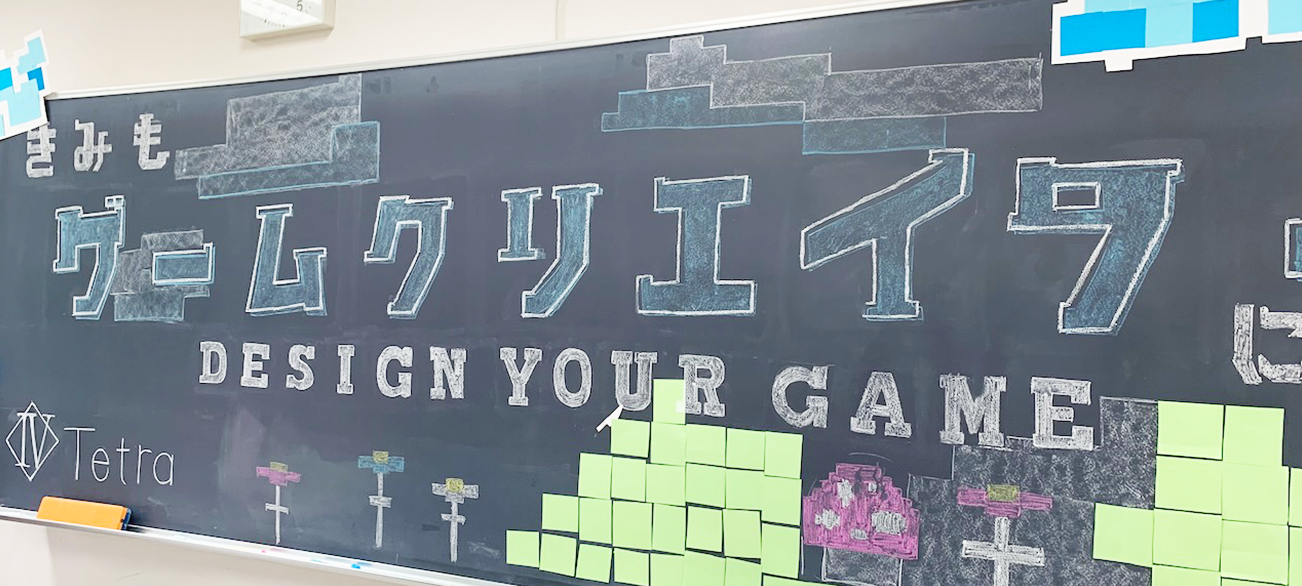 きみも
ゲームクリエイタ
に
DESIGN YOUR GAME
IV Tetra